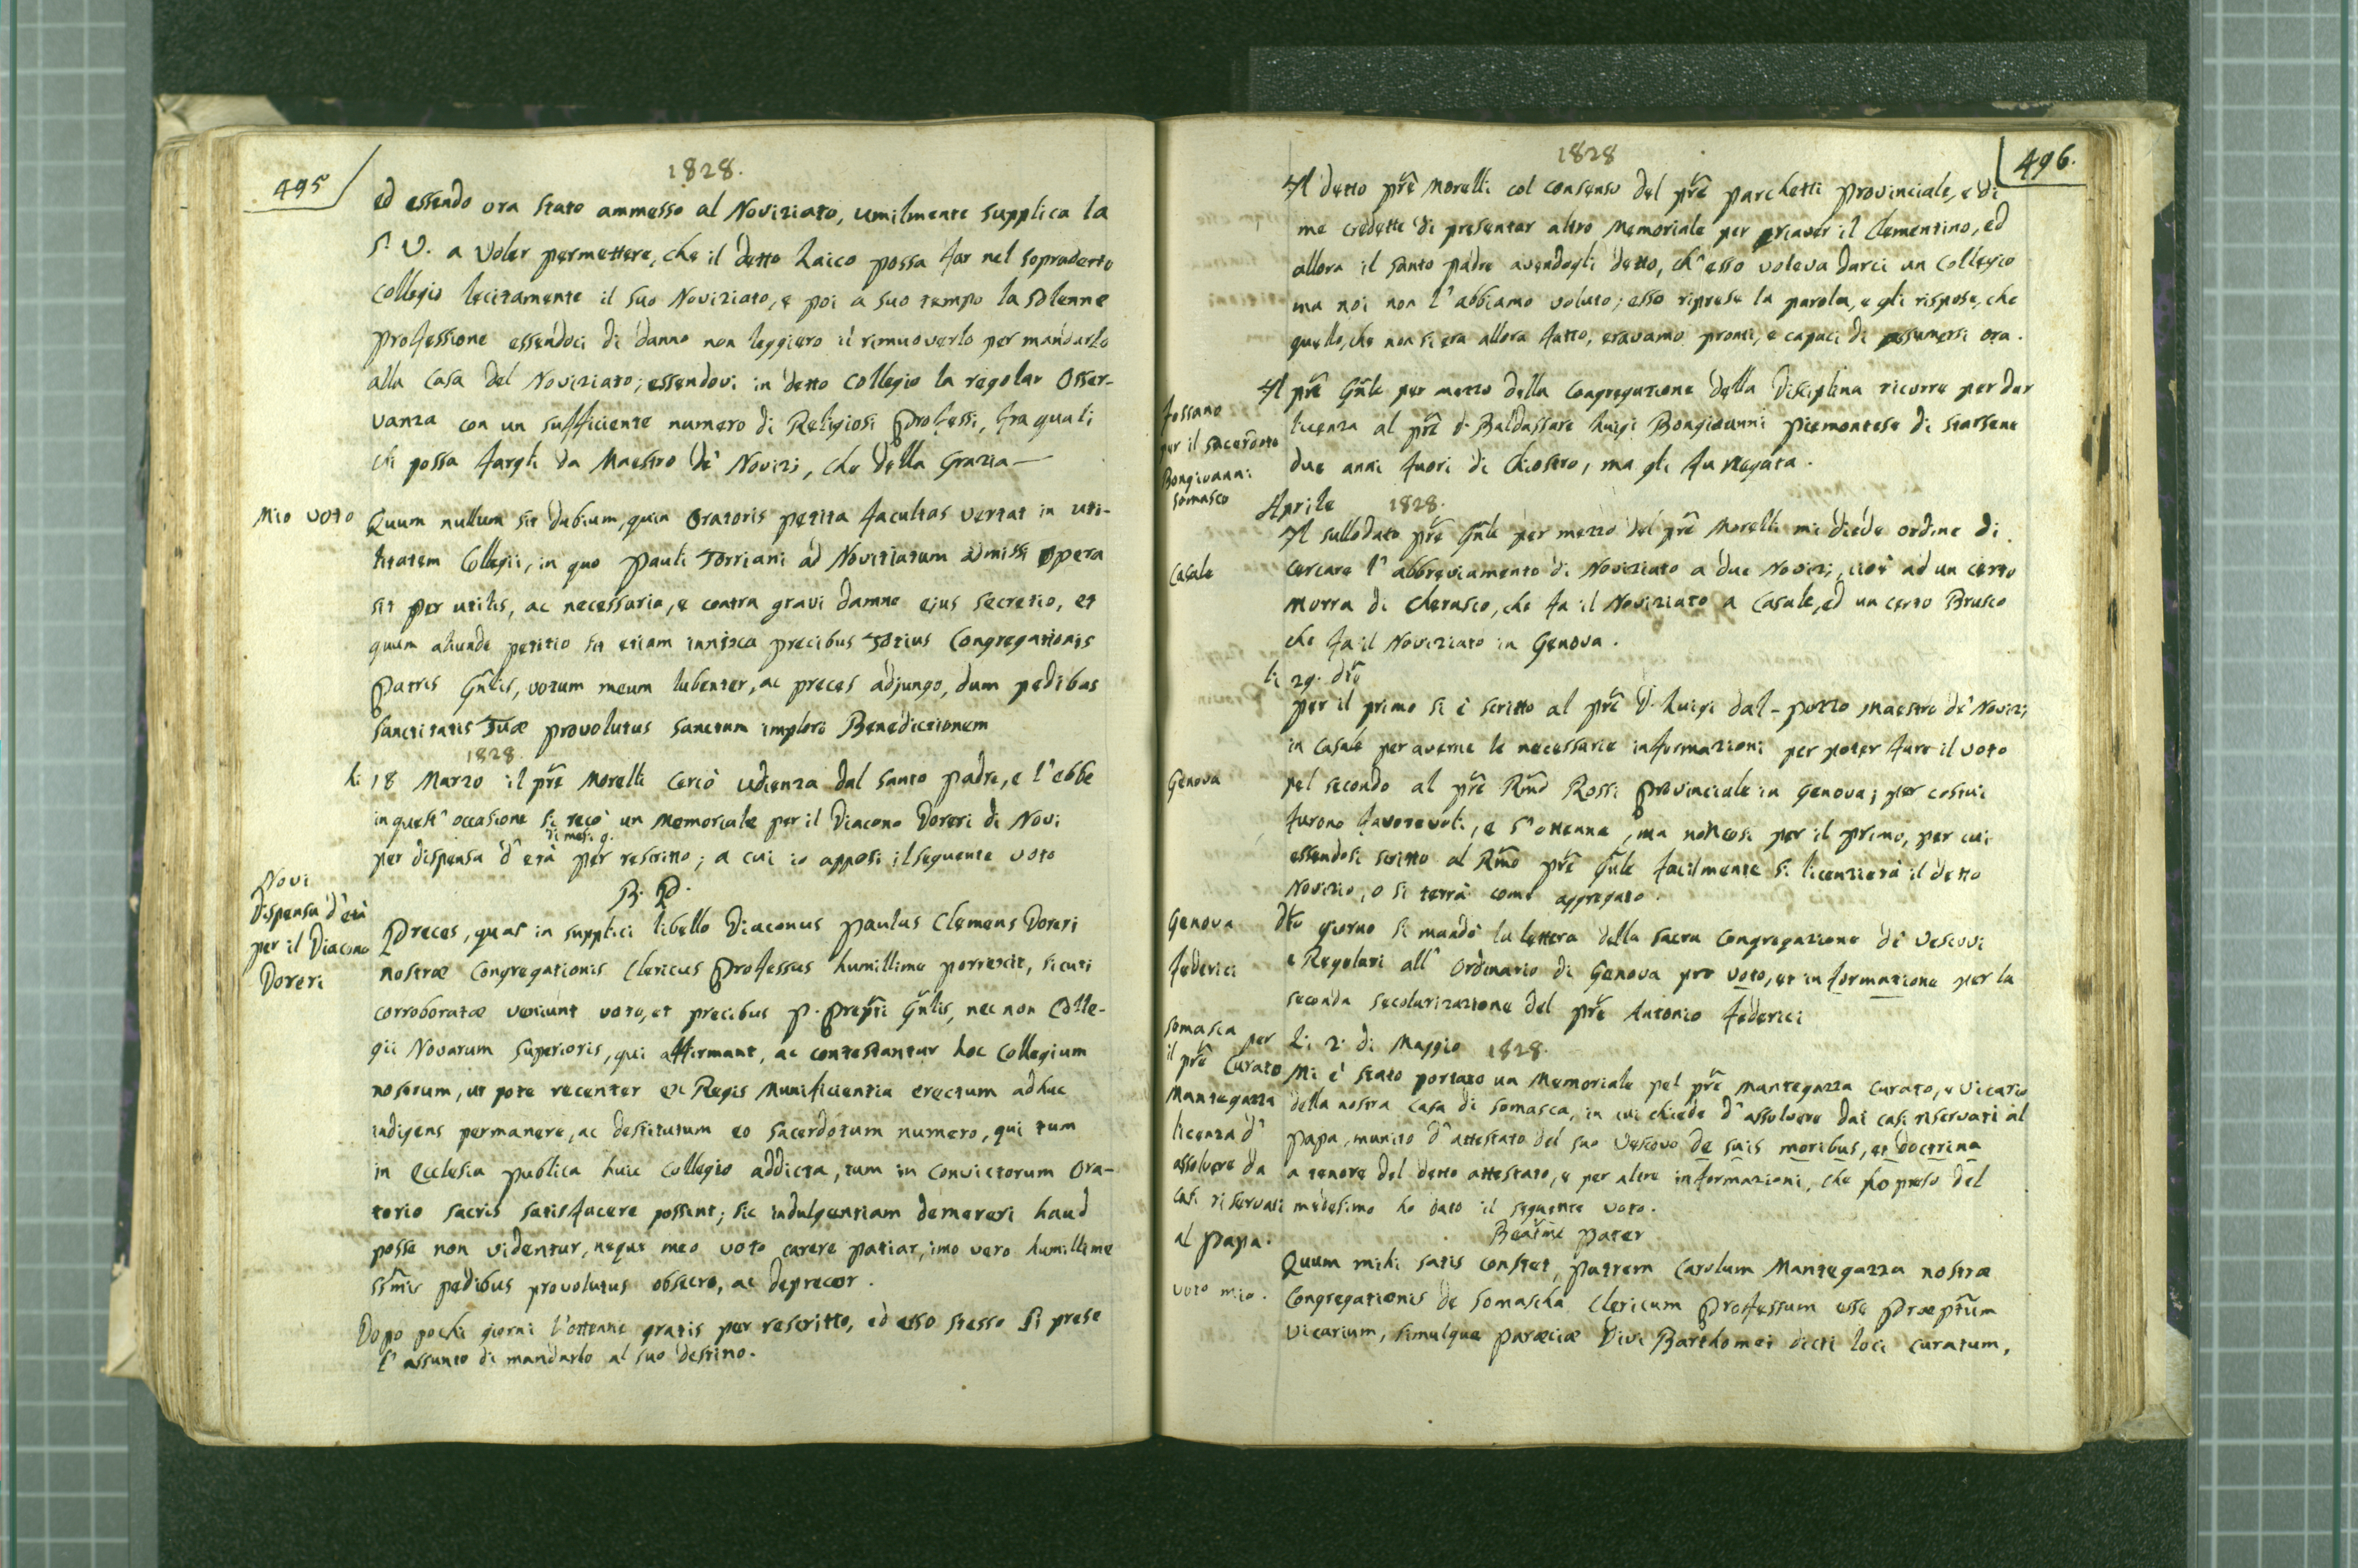 495
1828.
ed essendo ora stato ammesso al Noviziato, umilmente supplica la
S. V. a voler permettere, che il detto Laico possa far nel sopradetto
Collegio lecitamente il suo Noviziato, e poi a suo tempo la solenne
professione essendoci di danno non leggiero il rimuoverlo per mandarlo
alla Casa del Noviziato; essendovi in detto Collegio la regolar Osser-
vanza con un sufficiente numero di Religiosi Professi, fra quali
chi possa fargli da Maestro de' Novizj, che della Grazia —
Mio voto
Quum nullum sit dubium, quin Oratoris petita facultas vertat in uti-
litatem Collegii, in quo Pauli Torriani ad Novitiatum admissi opera
sit per utilis, ac necessaria, e contra gravi damno ejus secretio, et
quum aliunde petitio sit etiam innixa precibus Totius Congregationis
Patris Gn̄lis, votum meum lubenter, ac preces adjungo, dum pedibus
Sanctitatis Tuæ provolutus sanctam imploro Benedictionem
1828.
li 18 Marzo il pr̃e Morelli cercò udienza dal Santo Padre, e l'ebbe
in quest' occasione si recò un Memoriale per il Diacono Doreri di Novi
di mesi 9.
per dispensa d' età per rescritto; a cui io apposi il seguente voto
B. P.
Novi
Dispensa d'età
per il Diacono
Doreri
Preces, quas in supplici libello Diaconus Paulus Clemens Doreri
nostræ Congregationis Clericus Professus humillime porrexit, sicuti
corroboratæ veniunt voto, et precibus P. Prep̃ti Gn̄lis, nec non Colle-
gii Novarum Superioris, qui affirmant, ac contestantur hoc Collegium
nostrum, ut pote recenter ex Regis Munificientia erectum adhuc
indigens permanere, ac destitutum eo sacerdotum numero, qui tum
in Ecclesia publica huic Collegio addicta, tum in Convictorum Ora-
torio sacris satisfacere possint; sic indulgentiam demereri haud
posse non videntur, neque meo voto carere patiar, imo vero humillime
ss̃mis pedibus provolutus obsecro, ac deprecor.
Dopo pochi giorni l'ottenne gratis per rescritto, ed esso stesso si prese
l' assunto di mandarlo al suo destino.
496.
1828
Il detto pr̃e Morelli col consenso del pr̃e Parchetti Provinciale, e di
me credette di presentar altro Memoriale per riaver il Clementino, ed
allora il Santo Padre avendogli detto, ch' esso voleva darci un Collegio
ma noi non l' abbiamo voluto; esso riprese la parola, e gli rispose, che
quello, che non si era allora fatto, eravamo pronti, e capaci di assumersi ora.
Fossano
per il sacerdote
Bongiovanni
Somasco
Il pr̃e Gn̄le per mezzo della Congregazione della Disciplina ricorre per dar
licenza al pr̃e D. Baldassare Luigi Bongioanni Piemontese di starsene
due anni fuori di Chiostro, ma gli fu negata.
Aprile 1828.
Il sullodato pr̃e Gn̄le per mezzo del pr̃e Morelli mi diede ordine di
Casale
cercare l' abbreviamento di Noviziato a due Novizj, cioè ad un certo
Morra di Cherasco, che fa il Noviziato a Casale, ed un certo Brusco
che fa il Noviziato in Genova.
li 29. dto
per il primo si è scritto al pr̃e D. Luigi dal-pozzo Maestro de' Novizj
in Casale per averne le necessarie informazioni per poter fare il voto
Genova
pel secondo al pr̃e Rm̃o Rossi Provinciale in Genova; per costui
furono favorevoli, e s' ottenne, ma non così per il primo, per cui
essendosi scritto al Rm̃o pr̃e Gn̄le facilmente si licenzierà il detto
Novizio, o si terrà come aggregato.
Genova
Federici
dto giorno si mandò la lettera della Sacra Congregazione de' Vescovi
e Regolari all' Ordinario di Genova pro voto, et informatione per la
seconda secolarizazione del pr̃e Antonio Federici
Li 2. di Maggio 1828.
Somasca per
il pr̃e Curato
Mantegazza
licenza d'
assolvere da
casi riservati
al Papa.
Mi è stato portato un Memoriale pel pr̃e Mantegazza Curato, e Vicario
della nostra casa di Somasca, in cui chiede d' assolvere dai casi riservati al
Papa, munito d' attestato del suo Vescovo de suis moribus, et doctrina
a tenore del detto attestato, e per altre informazioni, che ho preso del
medesimo ho dato il seguente voto.
Beatm̃e Pater
voto mio.
Quum mihi satis constet, Patrem Carolum Mantegazza nostræ
Congregationis de Somascha Clericum Professum esse Præptũm
Vicarium, simulque paræciæ Divi Bartholomei dicti loci curatum,